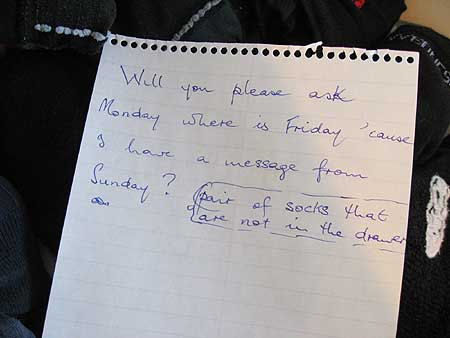 Will you please ask
Monday where is Friday 'cause
I have a message from
Sunday? (pair of socks that
are not in the drawer